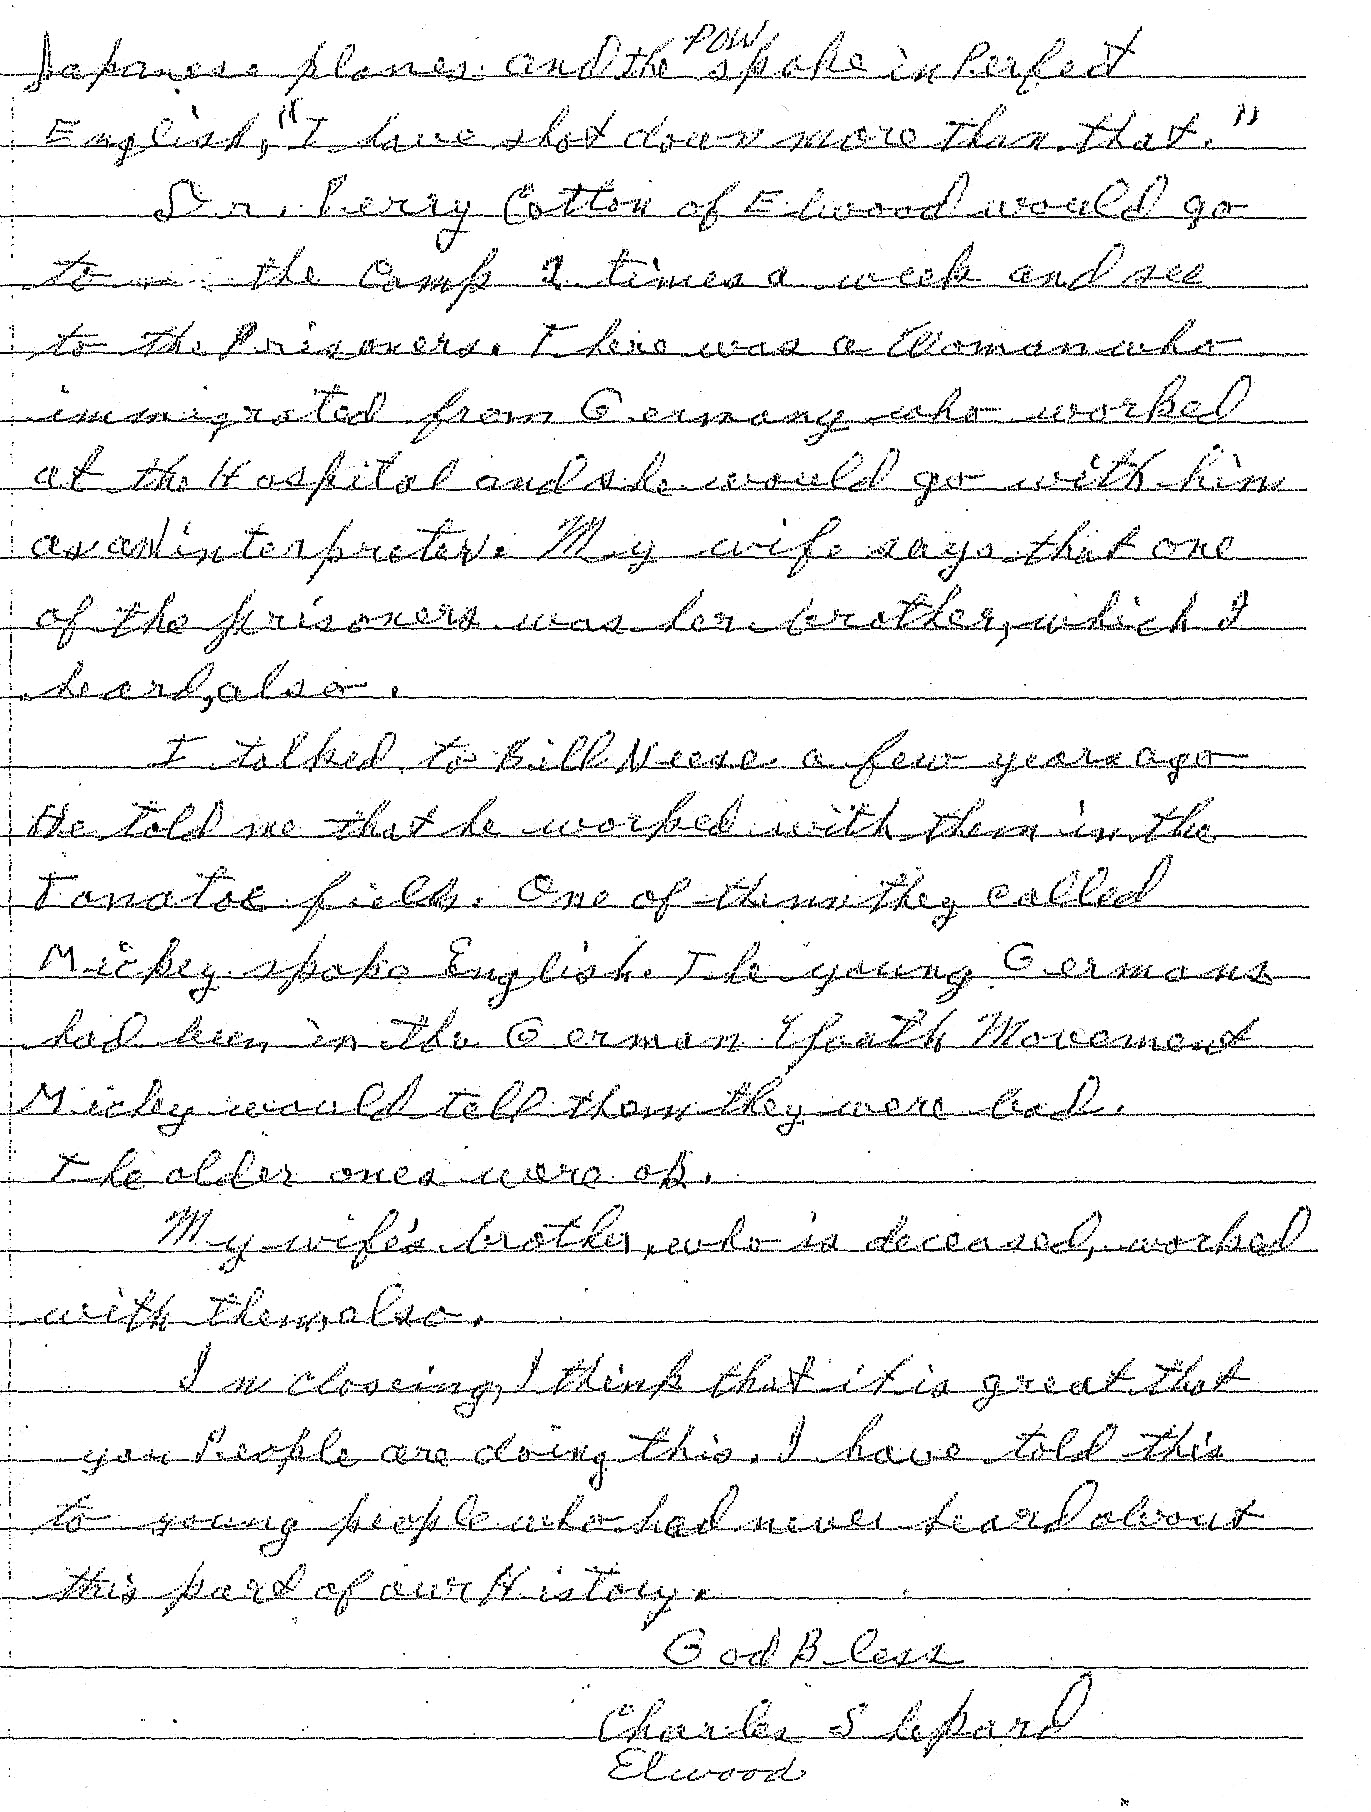 Japanese planes. and the POW spoke in Perfect
English, "I have shot down more than that."
Dr. Perry Cotton of Elwood would go
to the Camp 2 times a week and see
to the Prisoners. There was a Woman who
immigrated from Germany who worked
at the Hospital and she would go with him
as an interpreter. My wife says that one
of the prisoners was her brother, which I
heard, also.
I talked to Bill Neese a few years ago
He told me that he worked with them in the
Tomatoe fields. One of them they called
Mickey spoke English. The young Germans
had been in the German Youth Movement
Mickey would tell them they were bad.
The older ones were ok.
My wife's brother, who is deceased, worked
with them, also.
In closing, I think that it is great that
you People are doing this. I have told this
to young people who had never heard about
this part of our History.
God Bless
Charles Shepard
Elwood